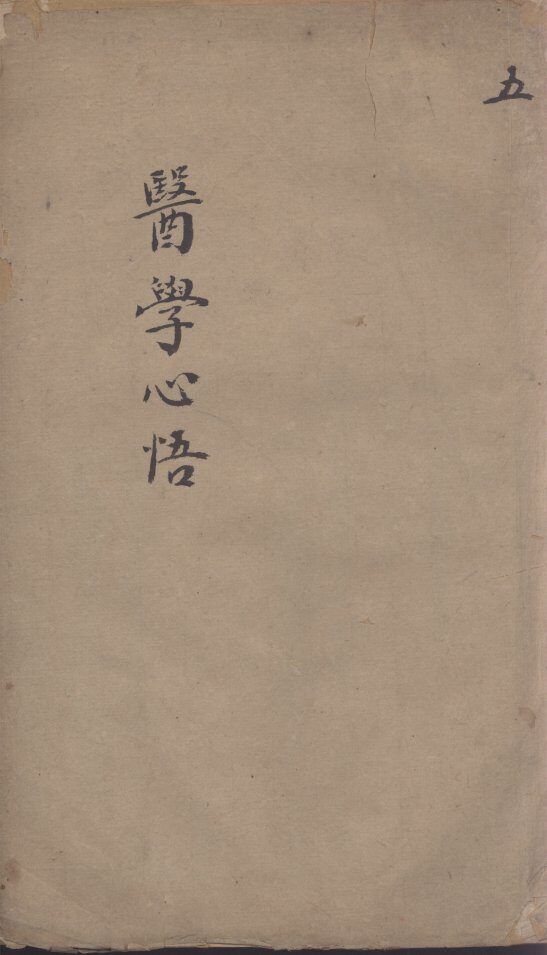 五
醫學心悟